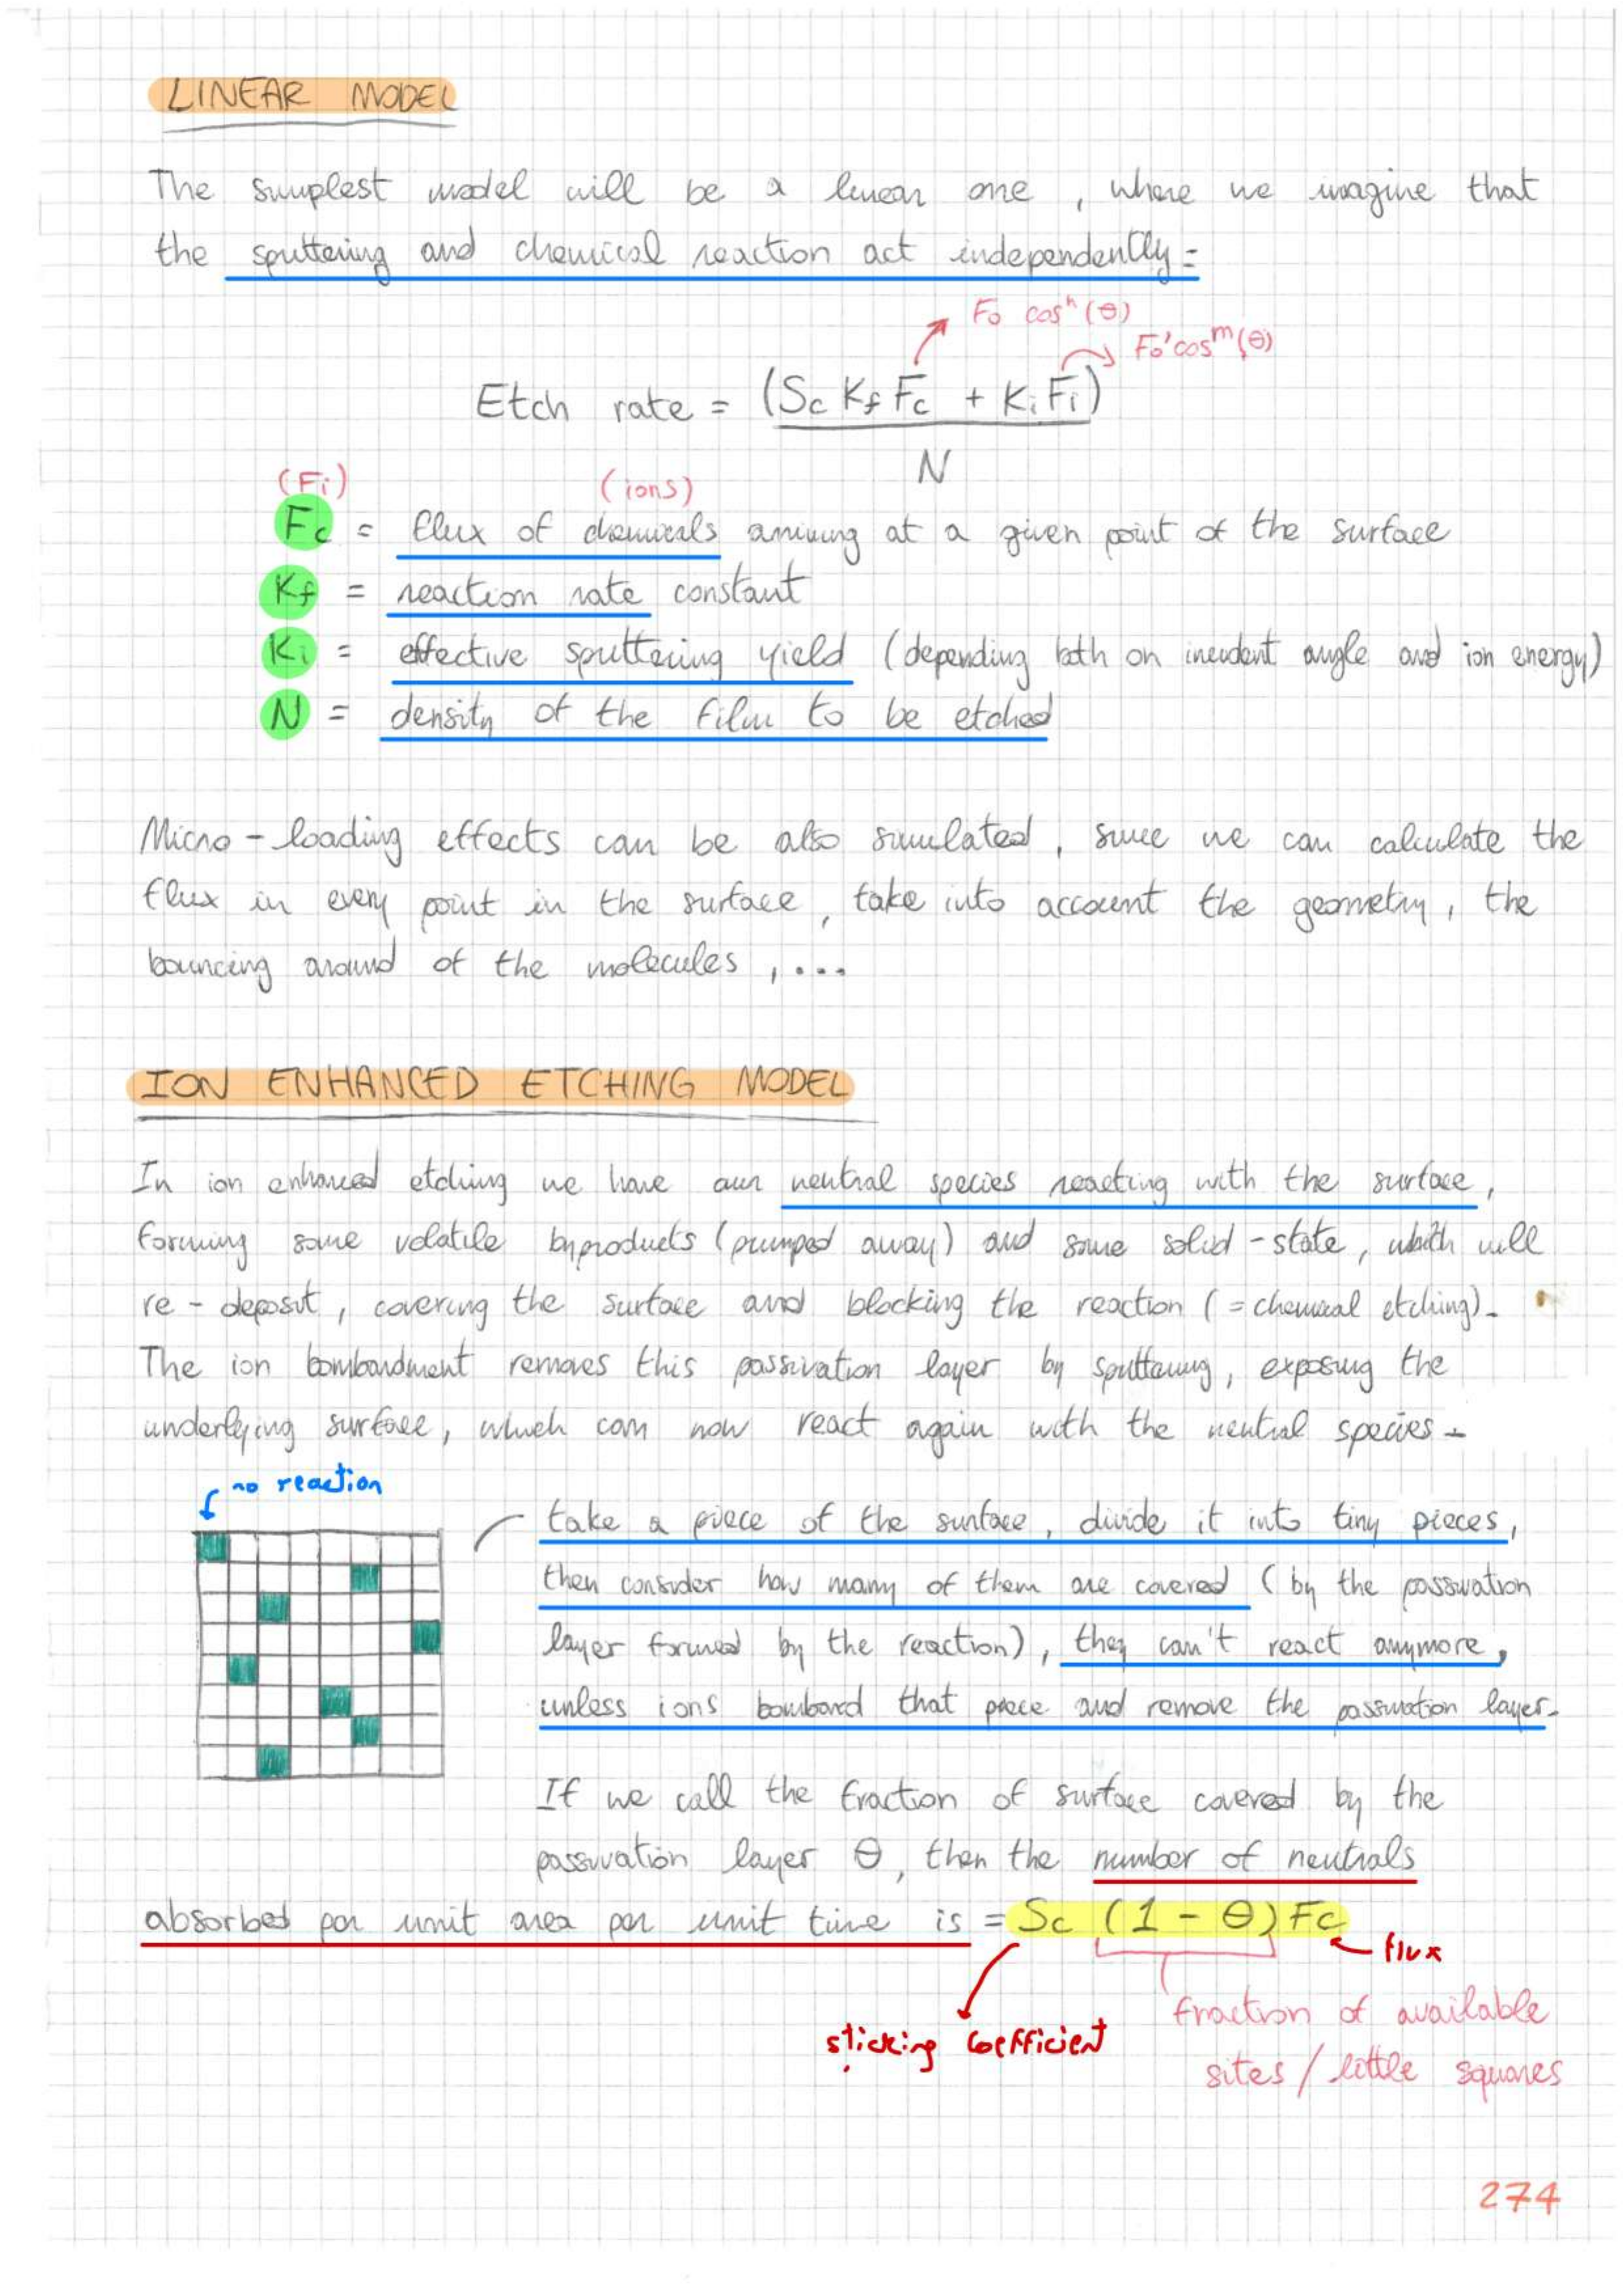 LINEAR MODEL
The simplest model will be a linear one, where we imagine that
the sputtering and chemical reaction act independently =
F₀ cosⁿ(θ)
F₀' cosᵐ(θ)
Etch rate = (Sc Kf Fc + Ki Fi)
N
(Fi) (ions)
Fc = flux of chemicals arriving at a given point of the surface
Kf = reaction rate constant
Ki = effective sputtering yield (depending both on incident angle and ion energy)
N = density of the film to be etched
Micro-loading effects can be also simulated, since we can calculate the
flux in every point in the surface, take into account the geometry, the
bouncing around of the molecules, ....
ION ENHANCED ETCHING MODEL
In ion enhanced etching we have our neutral species reacting with the surface,
forming some volatile byproducts (pumped away) and some solid-state, which will
re-deposit, covering the surface and blocking the reaction (= chemical etching).
The ion bombardment removes this passivation layer by sputtering, exposing the
underlying surface, which can now react again with the neutral species.
no reaction
take a piece of the surface, divide it into tiny pieces,
then consider how many of them are covered (by the passivation
layer formed by the reaction), they can't react anymore,
unless ions bombard that piece and remove the passivation layer.
If we call the fraction of surface covered by the
passivation layer θ, then the number of neutrals
absorbed per unit area per unit time is = Sc (1 - θ) Fc
flux
fraction of available
sticking coefficient
sites / little squares
274